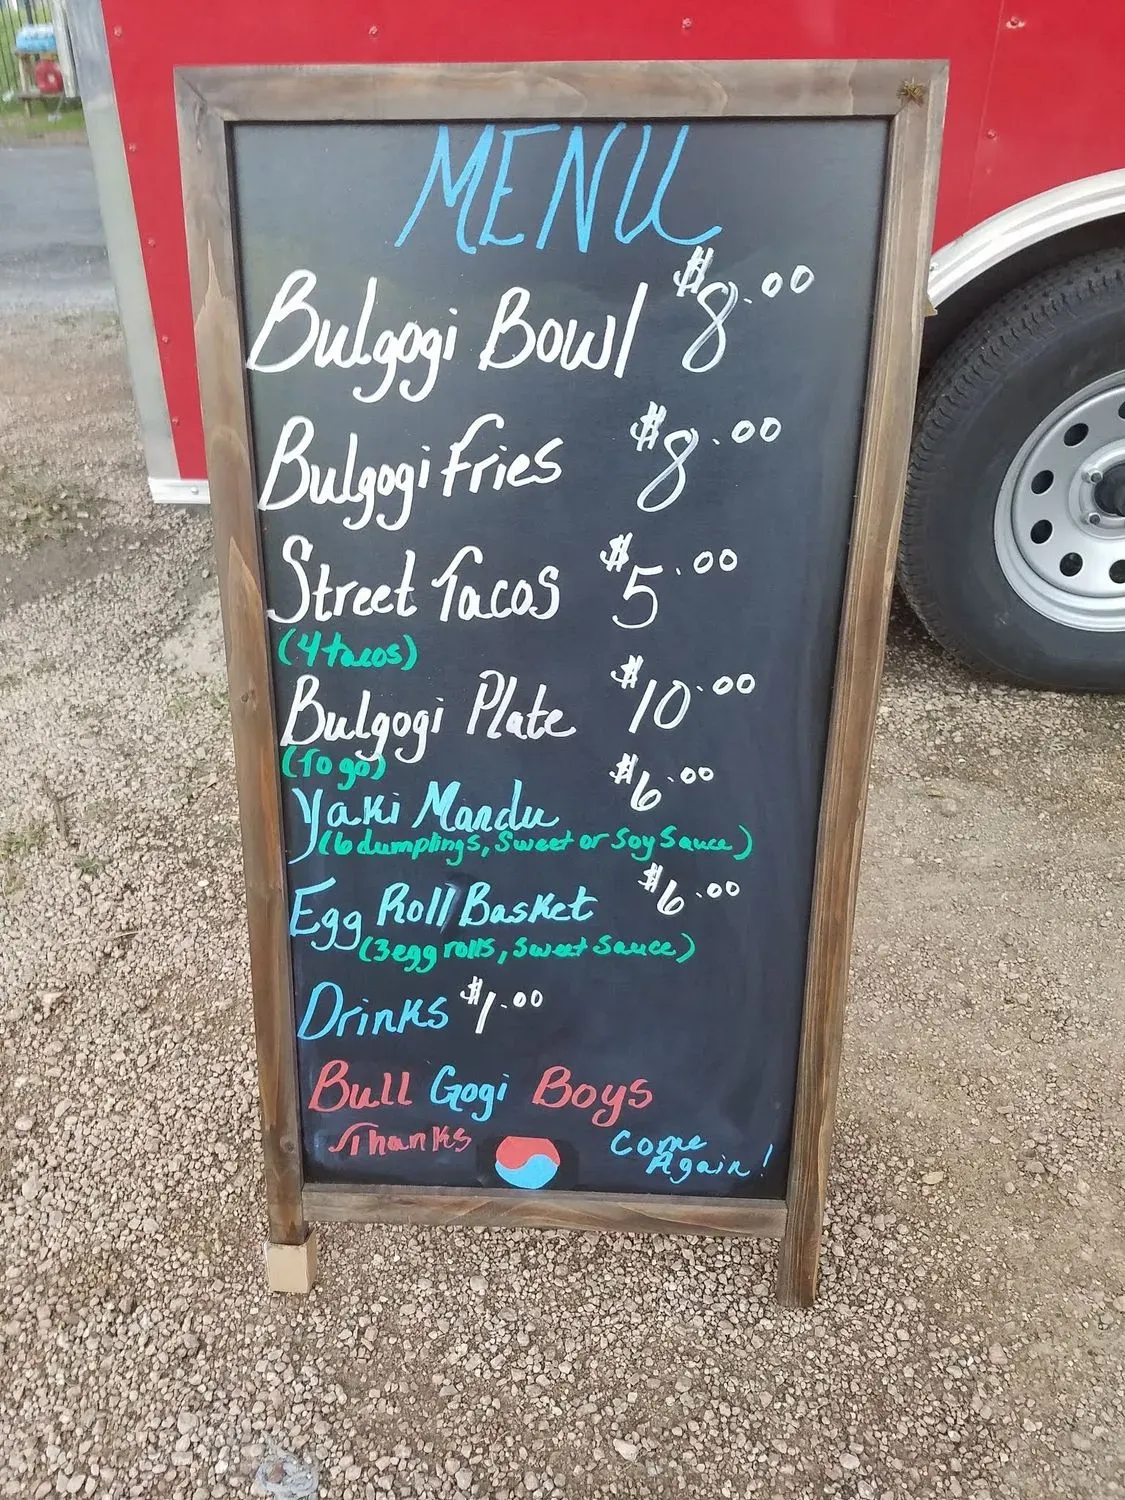 MENU
Bulgogi Bowl $8.00
Bulgogi Fries $8.00
Street Tacos $5.00
(4 tacos)
Bulgogi Plate $10.00
(To go)
Yaki Mandu $6.00
(6 dumplings, Sweet or Soy Sauce)
Egg Roll Basket $6.00
(3 egg rolls, Sweet Sauce)
Drinks $1.00
Bull Gogi Boys
Thanks Come Again!